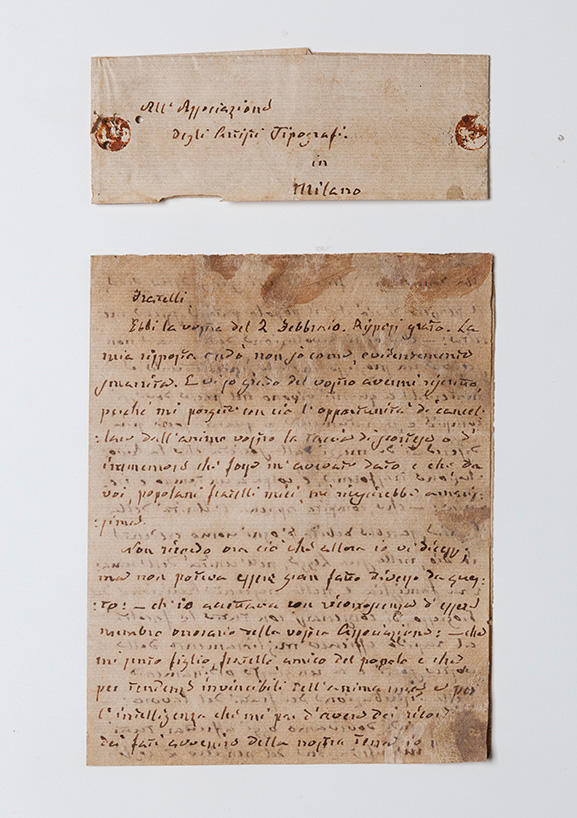 All' Associazione
Degli Artisti Tipografi.
in
Milano
Fratelli.
Ebbi la vostra del 2 Febbraio. Risposi grato. La
mia risposta andò, non so come, evidentemente
smarrita. E vi so grado del vostro avermi riscritto,
perché mi porgete con ciò l'opportunità di cancel-
:lare dall'animo vostro la taccia di scortese o d'
immemore che forse m'avevate dato e che da
voi, popolani fratelli miei, mi riescirebbe amaris-
:sima.
Non ricordo ora ciò che allora io vi dicessi;
ma non poteva essere gran fatto diverso da ques-
:to: — ch'io accettava con riconoscenza d'essere
membro onorario della vostra Associazione: — che
mi sento figlio, fratello, amico del popolo e che
per tendenze invincibili dell'anima mia e per
l'intelligenza che mi par d'avere dei ricordi
dei fati avvenire della nostra terra, io